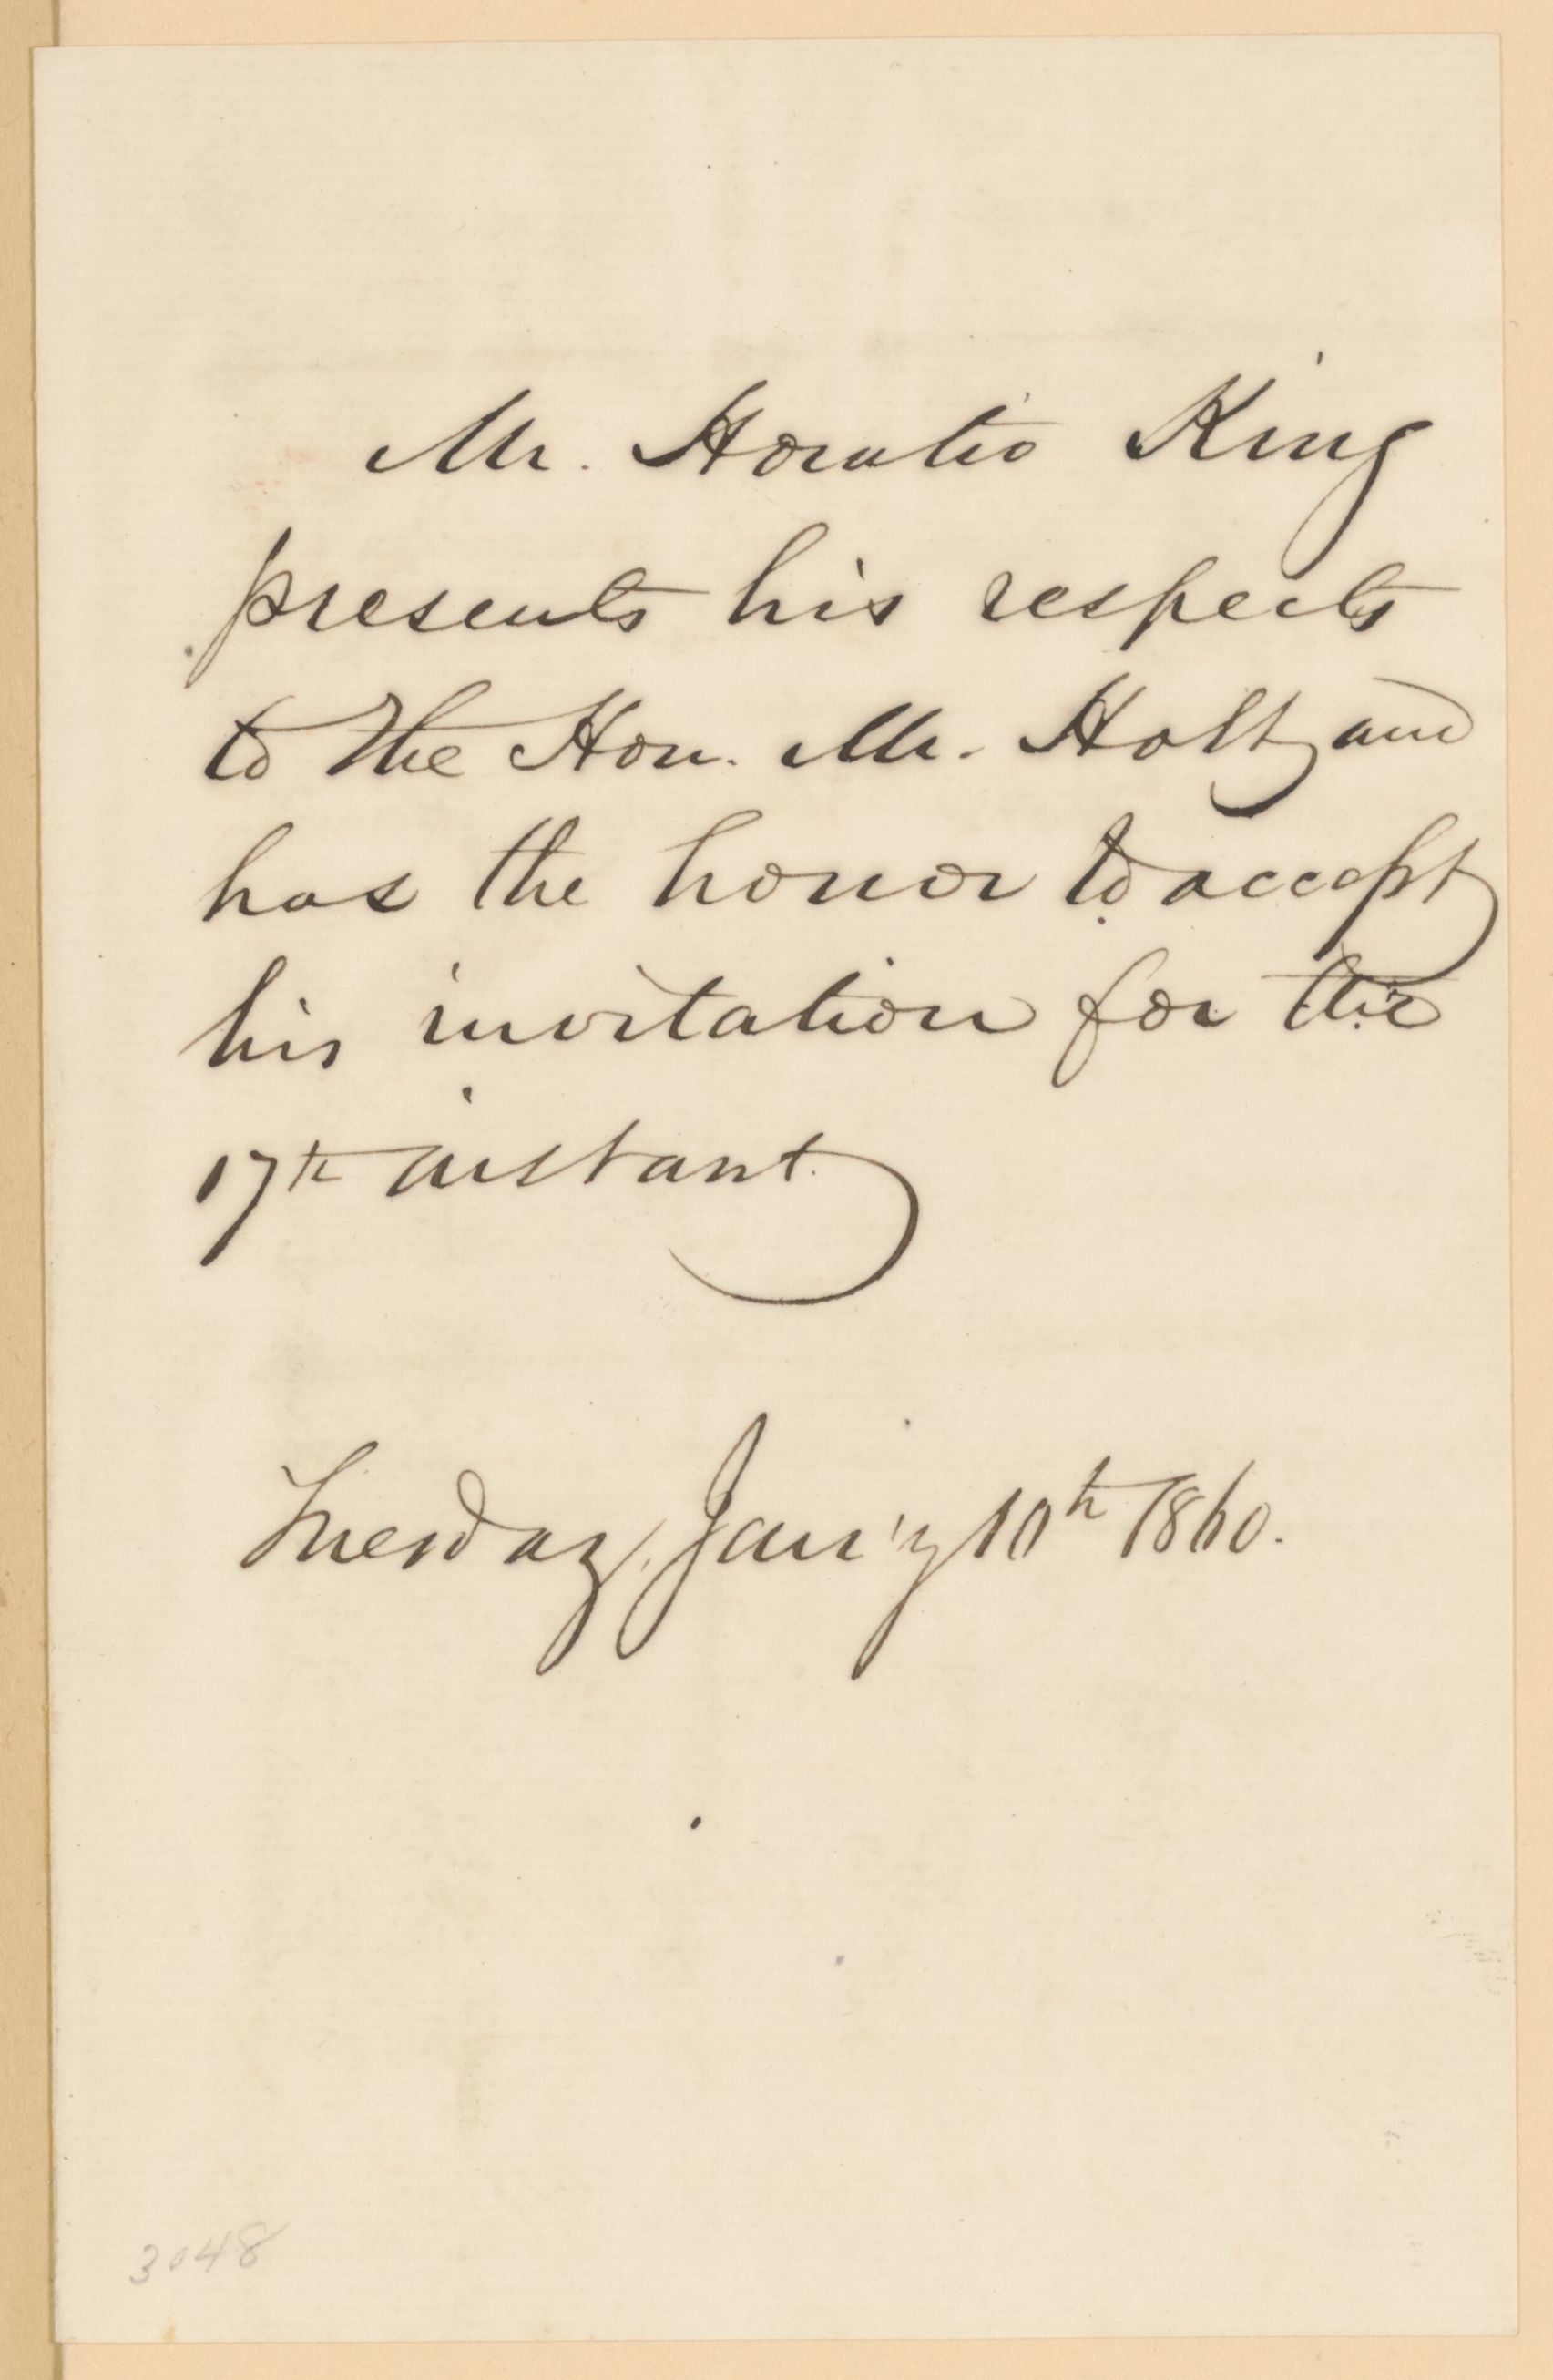 Mr. Horatio King
presents his respects
to the Hon. Mr. Holt, and
has the honor to accept
his invitation for the
17th instant.
Tuesday, Jan'y 10th 1860.
3048